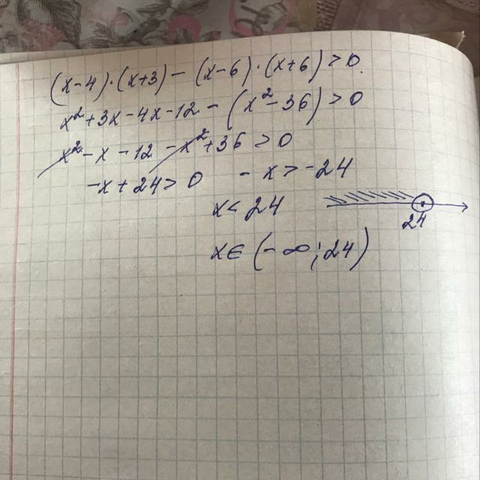 (x-4)·(x+3) - (x-6)·(x+6) > 0.
x²+3x-4x-12 - (x²-36) > 0
x²-x-12-x²+36 > 0
-x+24 > 0 -x > -24
x < 24
24
x ∈ (-∞; 24)